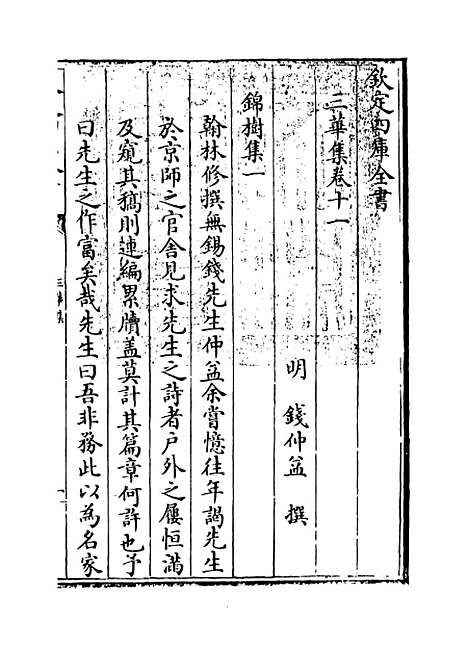 欽定四庫全書
三華集卷十一
明 錢仲益 撰
錦樹集一
翰林修撰無錫錢先生仲益余嘗憶往年謁先生
於京師之官舍見求先生之詩者户外之屨恒滿
及窺其稿則連編累牘盖莫計其篇章何許也予
曰先生之作富矣哉先生曰吾非務此以為名家